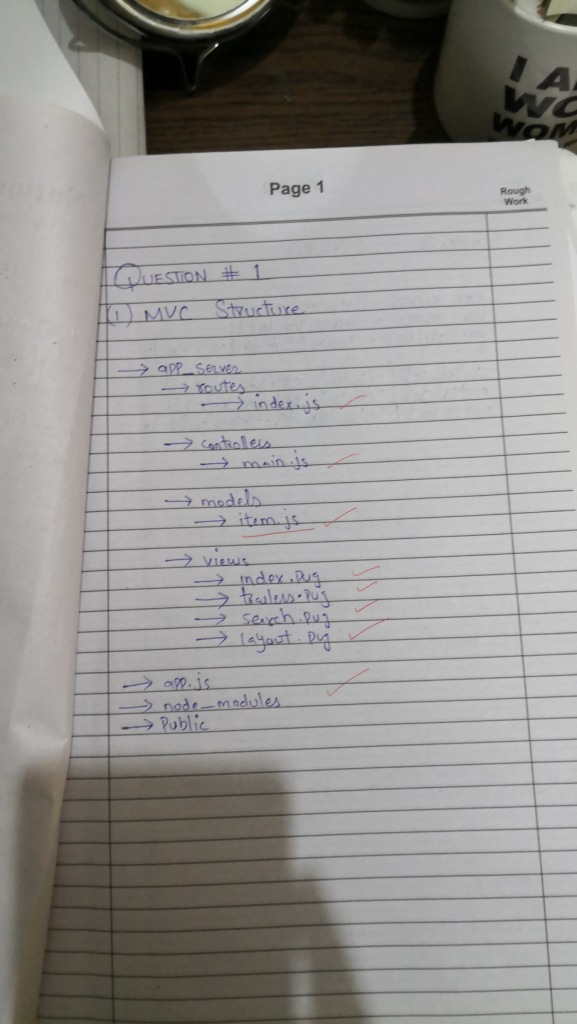 I A
WO
WOM
Page 1
Rough
Work
QUESTION # 1
(1) MVC Structure
→ app_server
→ routes
→ index.js
→ controllers
→ main.js
→ models
→ item.js
→ views
→ index.pug
→ search.pug
→ layout.pug
→ app.js
→ node_modules
→ Public